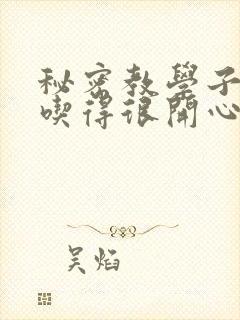 秘密教學子
喫得很開心
吴焰